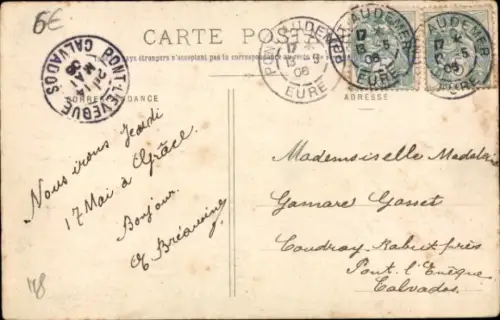 6€
CARTE POSTALE
pays étrangers n'acceptent pas la correspondance au recto
PONT-L'EVEQUE
CALVADOS
MAI
06
PONT-AUDEMER
17
13 -5
06
EURE
PONT-AUDEMER
17
13 -5
06
EURE
PONT-AUDEMER
17
13 -5
06
EURE
CORRESPONDANCE
ADRESSE
Nous irons Jeudi
17 Mai à Grâce
Bonjour
Mademoiselle
Gamare Gosset
Coudray-Rabut près
Pont l'Evêque
Calvados